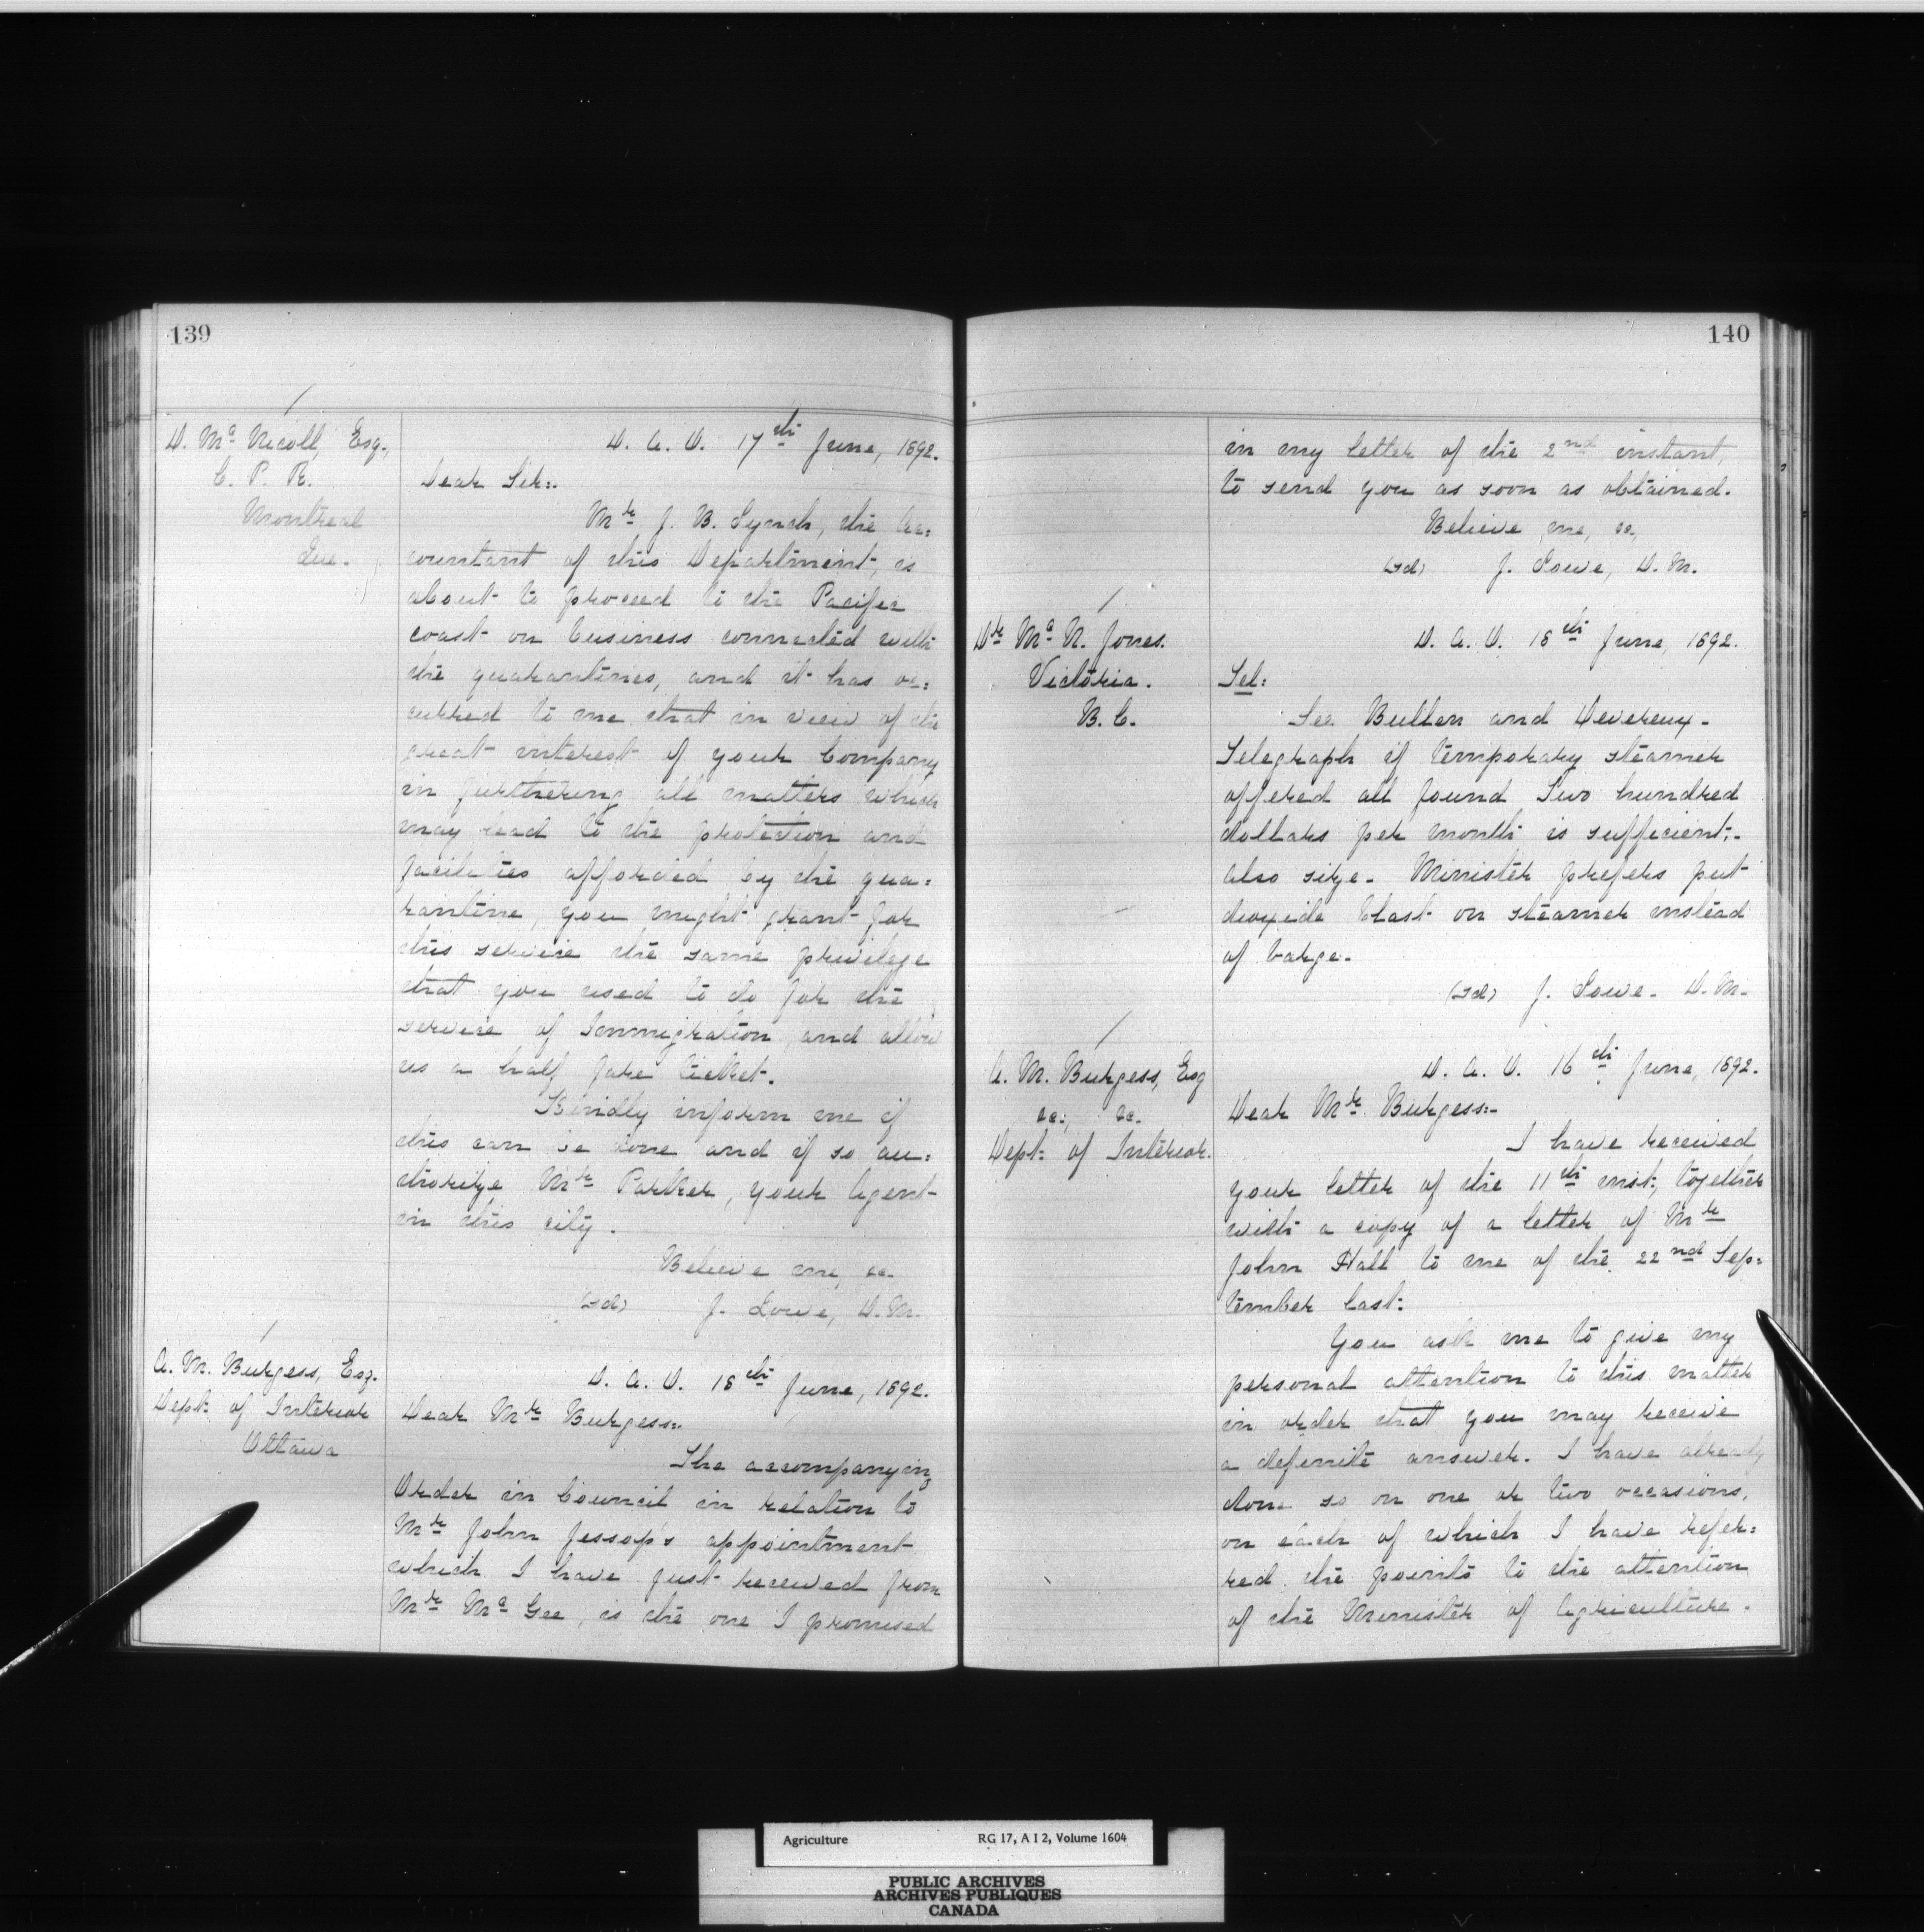 139
D. Mc Nicoll, Esq.,
C. P. R.
Montreal
Que.
D. A. O. 17th June, 1892.
Dear Sir:-
Mr J. B. Lynch, the Ac:
countant of this Department, is
about to proceed to the Pacific
coast on business connected with
the quarantines, and it has oc:
curred to me that in view of the
great interest of your Company
in furthering all matters which
may lead to the protection and
facilities afforded by the qua:
rantine, you might grant for
this service the same privilege
that you used to do for the
service of Immigration, and allow
us a half fare ticket.
Kindly inform me if
this can be done and if so au:
thorize Mr Parker, your Agent
in this city.
Believe me, &c.
(sd) J. Lowe, D.M.
A. M. Burgess, Esq.
Dept: of Interior
Ottawa
D. A. O. 18th June, 1892.
Dear Mr Burgess:-
The accompanying
Order in Council in relation to
Mr John Jessop's appointment
which I have just received from
Mr Mc Gee, is the one I promised
140
in my letter of the 2nd instant,
to send you as soon as obtained.
Believe me, &c,
(sd) J. Lowe, D. M.
Dr Mc N. Jones.
Victoria.
B. C.
D. A. O. 18th June, 1892.
Tel:
See Bullen and Devereux -
Telegraph if temporary steamer
offered all found Two hundred
dollars per month is sufficient;-
also size - Minister prefers put
dioxide blast on steamer instead
of barge -
(sd) J. Lowe - D. M.
A. M. Burgess, Esq
&c:, &c.
Dept: of Interior.
D. A. O. 16th June, 1892.
Dear Mr Burgess:-
I have received
your letter of the 11th inst:, together
with a copy of a letter of Mr
John Hall to me of the 22nd Sep:
tember last:
You ask me to give my
personal attention to this matter
in order that you may receive
a definite answer. I have already
done so on one or two occasions,
on each of which I have refer:
red the points to the attention
of the Minister of Agriculture.
Agriculture RG 17, A I 2, Volume 1604
PUBLIC ARCHIVES
ARCHIVES PUBLIQUES
CANADA